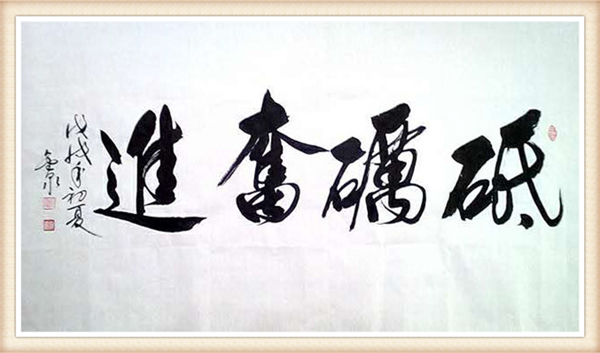 砥礪奮進
戊戌年初夏
金泉